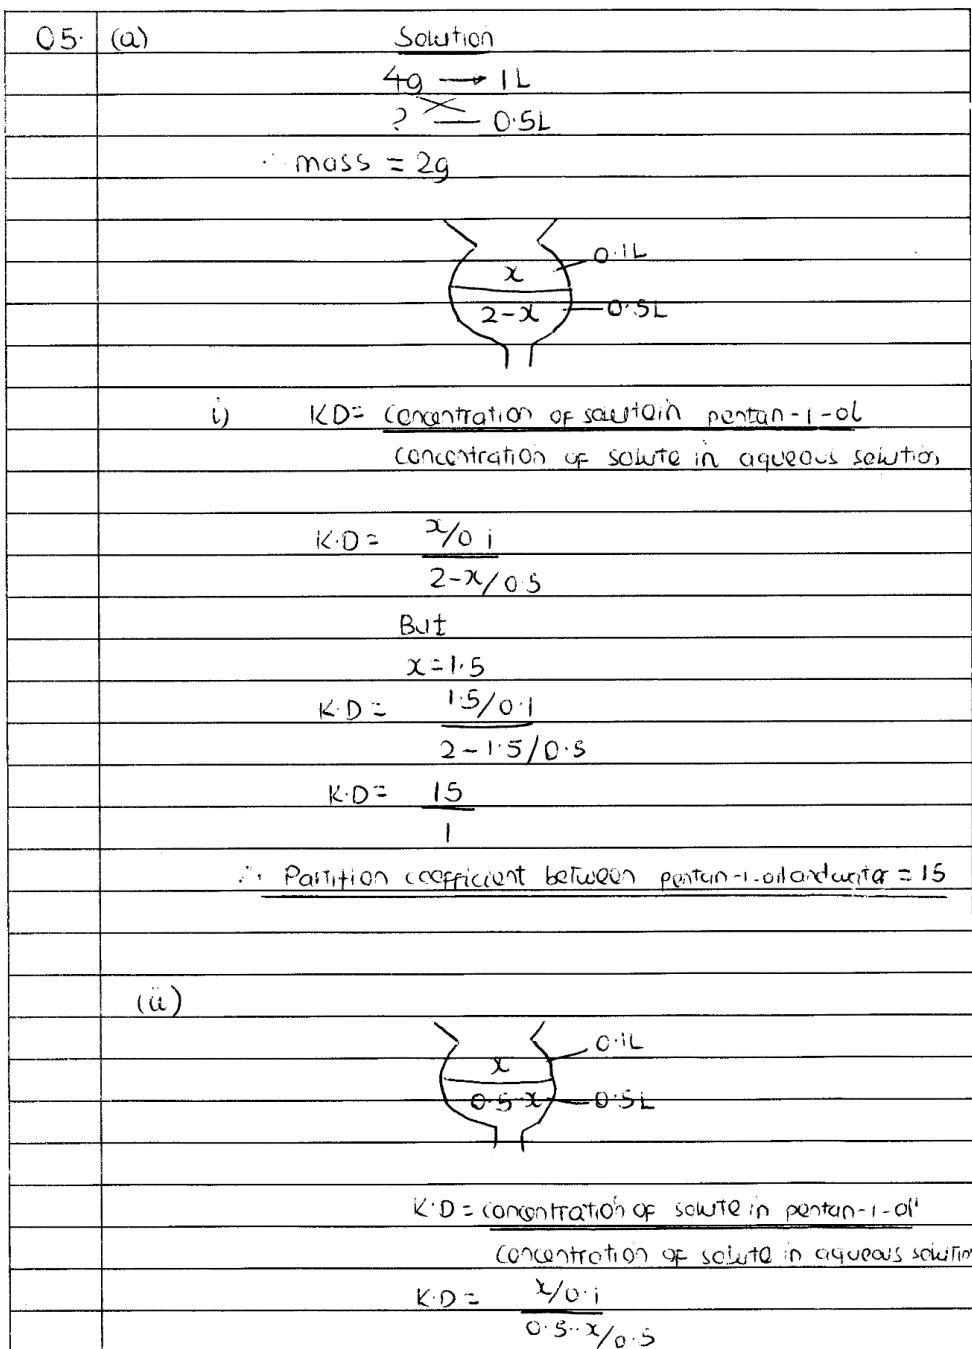 05. (a) Solution
4g → 1L
? — 0.5L
∴ mass = 2g
0.1L
x
2-x 0.5L
i) KD= concentration of solute in pentan-1-ol
concentration of solute in aqueous solution
K.D = x/0.1
2-x/0.5
But
x = 1.5
K.D = 1.5/0.1
2-1.5/0.5
K.D = 15
1
∴ Partition coefficient between pentan-1-ol and water = 15
(ii)
0.1L
x
0.5-x 0.5L
K.D = concentration of solute in pentan-1-ol
concentration of solute in aqueous solution
K.D = x/0.1
0.5-x/0.5